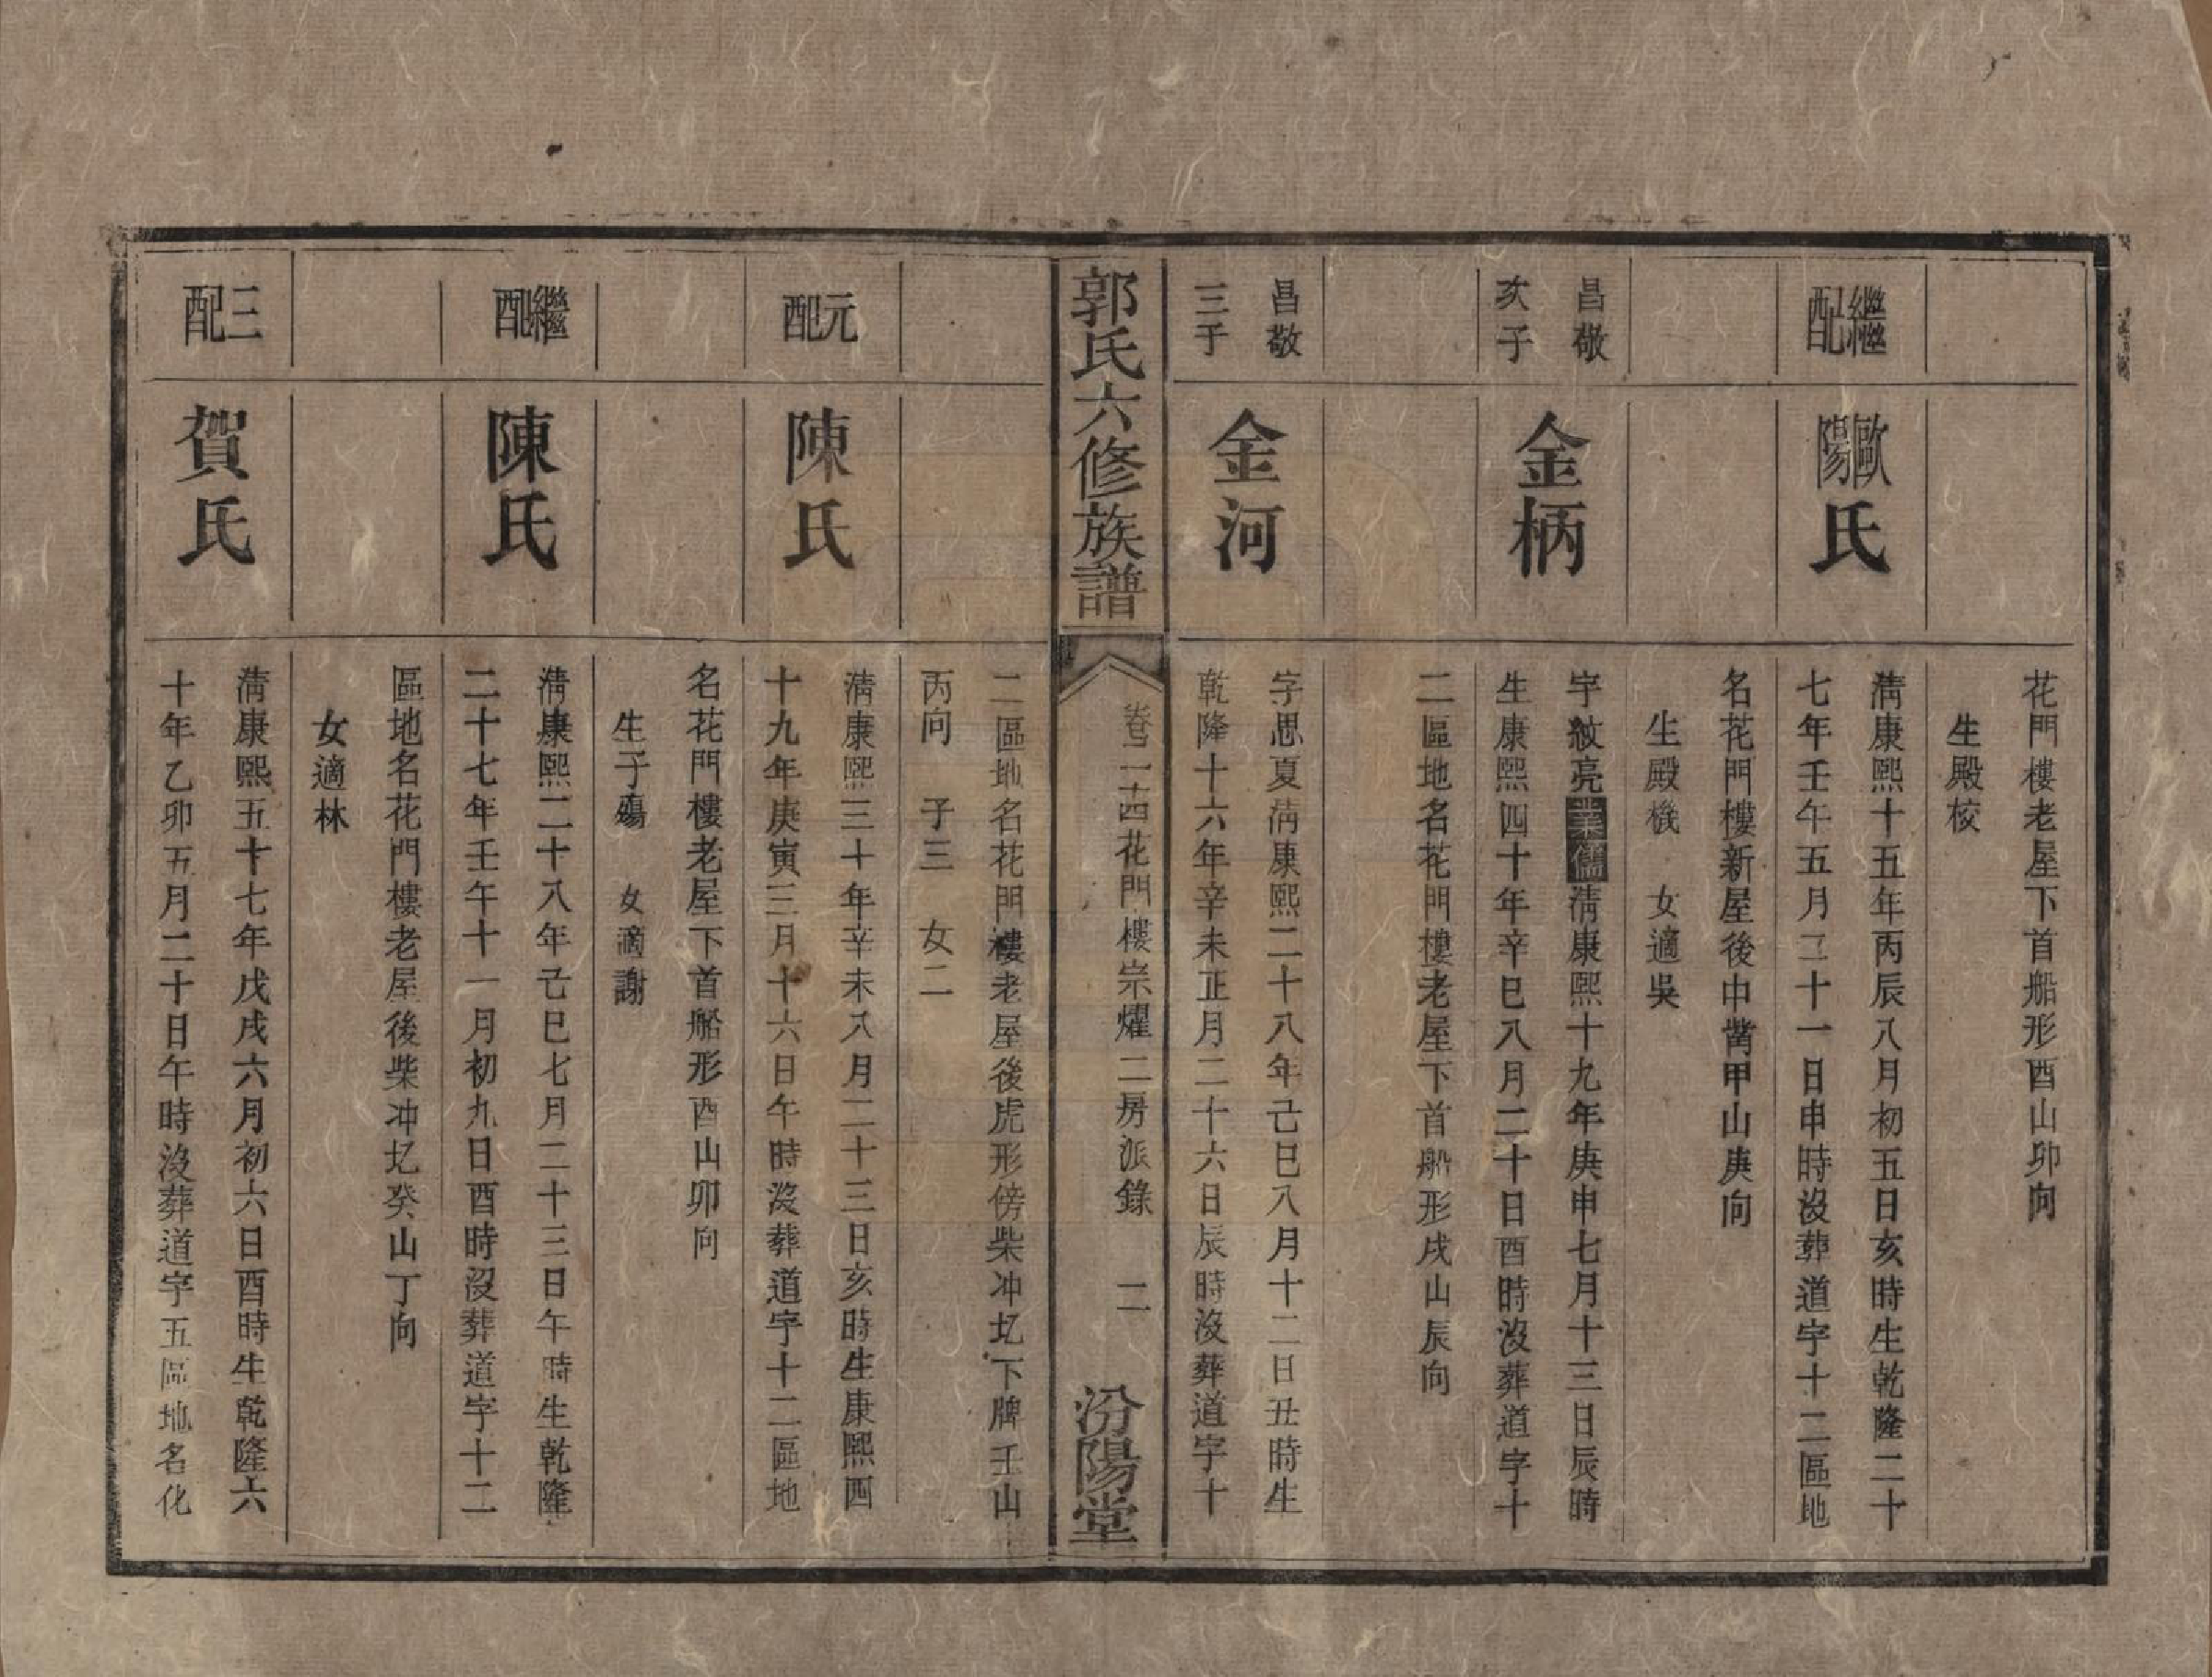 花門樓老屋下首船形酉山卯向
生殿核
繼配
歐陽氏
淸康熙十五年丙辰八月初五日亥時生乾隆二十
七年壬午五月二十一日申時沒葬道字十二區地
名花門樓新屋後中嵛甲山庚向
生殿機 女適吳
昌敬
次子
金柄
字紋亮業儒淸康熙十九年庚申七月十三日辰時
生康熙四十年辛巳八月二十日酉時沒葬道字十
二區地名花門樓老屋下首船形戌山辰向
昌敬
三子
金河
字思夏淸康熙二十八年己巳八月十二日丑時生
乾隆十六年辛未正月二十六日辰時沒葬道字十
郭氏六修族譜
卷二十四花門樓宗燿二房派錄 二
汾陽堂
二區地名花門樓老屋後虎形傍柴冲圠下牌壬山
丙向 子三 女二
元配
陳氏
淸康熙三十年辛未八月二十三日亥時生康熙四
十九年庚寅三月十六日午時沒葬道字十二區地
名花門樓老屋下首船形酉山卯向
生子殤 女適謝
繼配
陳氏
淸康熙二十八年己巳七月二十三日午時生乾隆
二十七年壬午十一月初九日酉時沒葬道字十二
區地名花門樓老屋後柴冲圠癸山丁向
女適林
三配
賀氏
淸康熙五十七年戊戌六月初六日酉時生乾隆六
十年乙卯五月二十日午時沒葬道字五區地名化